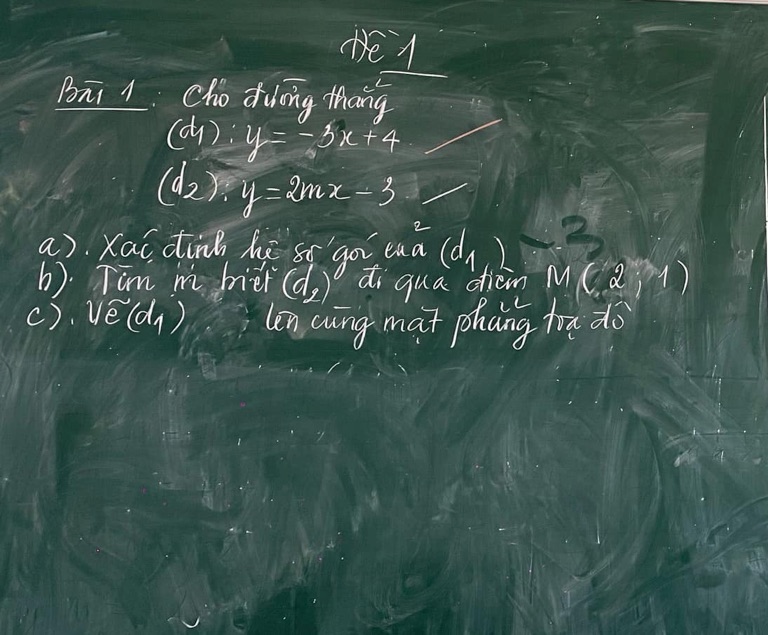 Đề 1
Bài 1: Cho đường thẳng
(d1): y = -3x+4
(d2): y = 2mx - 3
a). Xác định hệ số góc của (d1) -3
b). Tìm m biết (d2) đi qua điểm M(2; 1)
c). Vẽ (d1) lên cùng mặt phẳng tọa độ